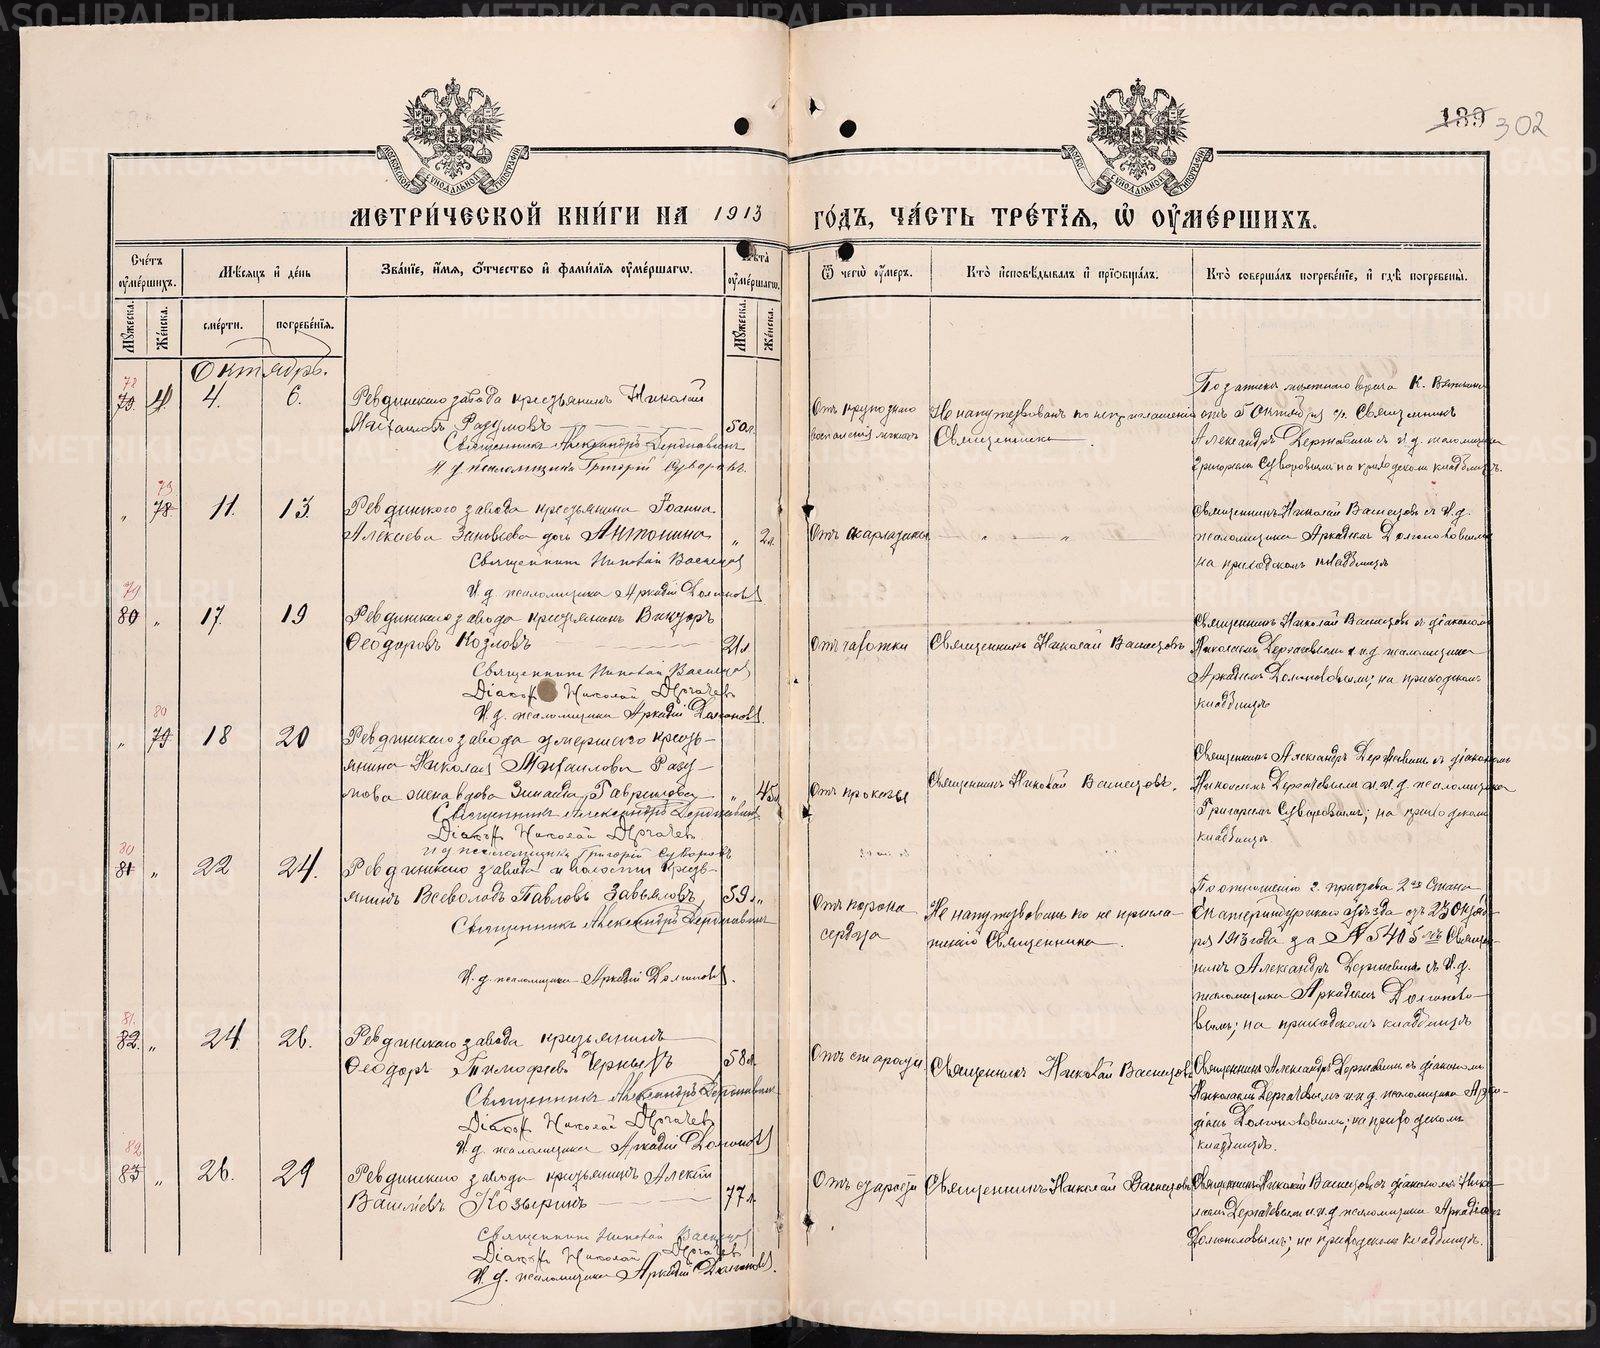 139 302
МЕТРИ́ЧЕСКОЙ КНИ́ГИ НА 1913 ГО́ДЪ, ЧА́СТЬ ТРЕ́ТІѦ, Ѡ҆ ОУ҆МЕ́РШИХЪ.
Счéтъ оу҆мéршихъ.
Мѣ́сяцъ и҆ дéнь
Звáніе, и҆́мя, ѻ҆́тчество и҆ фами́лія оу҆мéршагѡ.
Лѣ́та оу҆мéршагѡ.
Ѿ чегѡ̀ оу҆́меръ.
Ктò и҆сповѣ́дывалъ и҆ прїѻбщáлъ.
Ктò совершáлъ погребéніе, и҆ гдѣ̀ погребены̀.
Мꙋ́жеска.
Же́нска.
смéрти.
погребéнія.
Мꙋ́жеска.
Же́нска.
Октябрь.
78
79. 4. 6.
Ревдинскаго завода крестьянинъ Николай
Михаиловъ Разумовъ 50 л.
Священникъ Александръ Державинъ
И. д. псаломщика Григорій Суворовъ.
Отъ крупознаго
воспаленія легкихъ
Не напутствованъ по неприглашенію
Священника.
отъ 5 Октября Священникъ
Александръ Державинъ съ и. д. псаломщика
Григоріемъ Суворовымъ на приходскомъ кладбищѣ.
79
„ 78 11. 13.
Ревдинскаго завода крестьянина Іоанна
Алексѣева Зиновьева дочь Антонина „ 2 л.
Священникъ Николай Васнецовъ
И. д. псаломщика Аркадій Долгоновъ
Отъ скарлатины
„ „
Священникъ Николай Васнецовъ съ И. д.
псаломщика Аркадіемъ
на приходскомъ кладбищѣ
79
80 „ 17. 19
Ревдинскаго завода крестьянинъ Викторъ
Ѳеодоровъ Козловъ 21 л.
Священникъ Николай Васнецовъ
Діаконъ Николай Дергачевъ
И. д. псаломщика Аркадій
Отъ чахотки
Священникъ Николай Васнецовъ
Священникъ Николай Васнецовъ съ діакономъ
Николаемъ Дергачевымъ и и. д. псаломщика
Аркадіемъ на приходскомъ
кладбищѣ
80
„ 79 18 20
Ревдинскаго завода умершаго кресть-
янина Николая Михаилова Разу-
мова жена вдова Зинаида Гаврилова „ 45 л.
Священникъ Александръ Державинъ
Діаконъ Николай Дергачевъ.
И. д. псаломщика Григорій Суворовъ
Отъ проказы
Священникъ Николай Васнецовъ.
Священникъ Александръ Державинъ съ діакономъ
Николаемъ Дергачевымъ и и. д. псаломщика
Григоріемъ Суворовымъ; на приходскомъ
кладбищѣ.
80
81 „ 22 24.
Ревдинскаго завода и волости кресть-
янинъ Всеволодъ Павловъ Завьяловъ 59 л. „
Священникъ Александръ Державинъ
И. д. псаломщика Аркадій
Отъ порока
сердца
Не напутствованъ по не пригла-
шенію Священника.
По отношенію г. пристава 2го Стана
Екатеринбургскаго Уѣзда отъ 23 Октяб-
ря 1913 года за № 5405 Священ-
никъ Александръ Державинъ съ И. д.
псаломщика Аркадіемъ
на приходскомъ кладбищѣ
81.
82. „ 24 26.
Ревдинскаго завода крестьянинъ
Ѳеодоръ Тимофеевъ Черныхъ 58 л.
Священникъ Александръ Державинъ
Діаконъ Николай Дергачевъ
И. д. псаломщика Аркадій
Отъ старости
Священникъ Николай Васнецовъ
Священникъ Александръ Державинъ съ діакономъ
Николаемъ Дергачевымъ и и. д. псаломщика Арка-
діемъ на приходскомъ
кладбищѣ.
82
83 „ 26. 29
Ревдинскаго завода крестьянинъ Алексій
Васильевъ Козыринъ 77 л.
Священникъ Николай Васнецовъ
Діаконъ Николай Дергачевъ
И. д. псаломщика Аркадій
Отъ старости
Священникъ Николай Васнецовъ
Священникъ Николай Васнецовъ съ діакономъ Нико-
лаемъ Дергачевымъ и и. д. псаломщика Аркадіемъ
на приходскомъ кладбищѣ.
METRIKI.GASO-URAL.RU